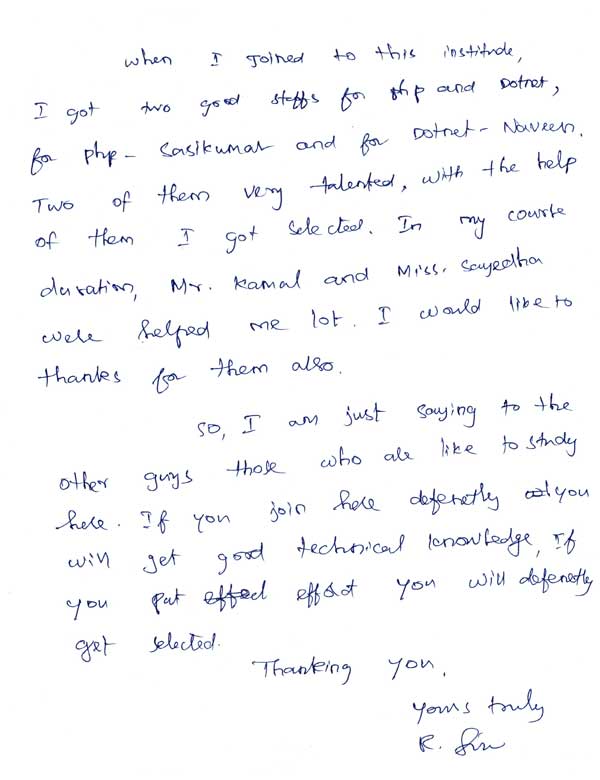 when I Joined to this institude,
I got two good staffs for php and Dotnet,
for php - Sasikumar and for Dotnet - Naveen.
Two of them very talented, with the help
of them I got selected. In my course
duration, Mr. Kamal and Miss. Sayeedha
were helped me lot. I would like to
thanks for them also.
So, I am just saying to the
other guys those who are like to study
here. If you join here defenetly you
will get good technical knowledge, If
you put effort you will defenetly
get selected.
Thanking you.
yours truly
R.